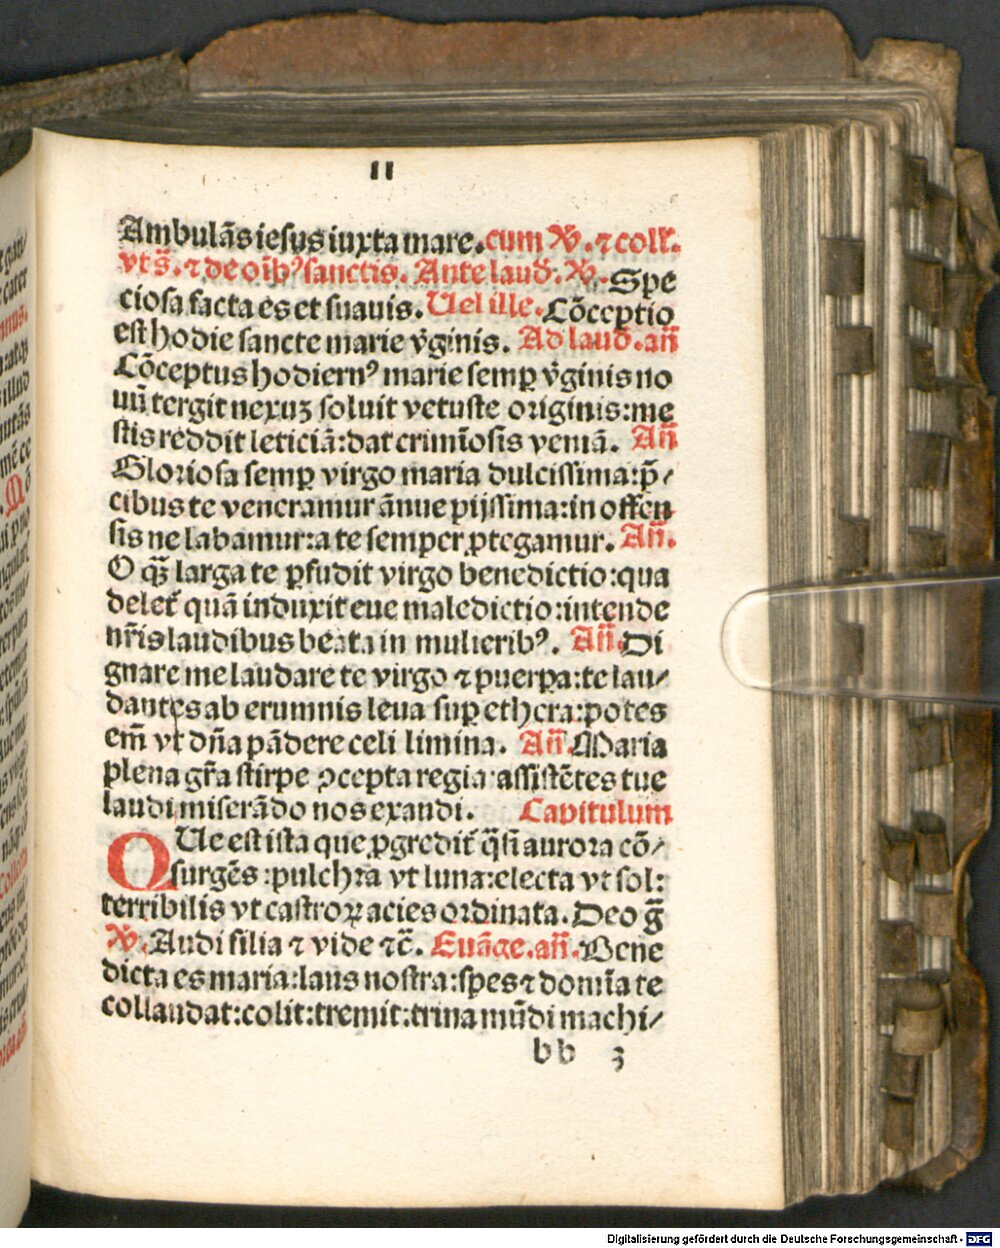 11
Ambulās iesus iuxta mare. cum ℣. ⁊ coll'.
vts̄. ⁊ de oīb⁹ sanctis. Ante laud̄. ℣. Spe
ciosa facta es et suauis. Uel ille. Cōceptio
est hodie sancte marie v̄ginis. Ad laud̄. an̄
Cōceptus hodiern⁹ marie semꝑ v̄ginis no
uū tergit nexuꝫ soluit vetuste originis: me
stis reddit leticiā: dat crimīosis veniā. An̄
Gloriosa semꝑ virgo maria dulcissima: p̄/
cibus te veneramur ānue pijssima: in offen
sis ne labamur: a te semper ꝓtegamur. An̄.
O qꝫ̄ larga te ꝑfudit virgo benedictio: qua
delet̄ quā induxit eue maledictio: intende
nr̄is laudibus beata in mulierib⁹. An̄. Di
gnare me laudare te virgo ⁊ puerꝑa: te lau/
dantes ab erumnis leua suꝑ ethera: potes
em̄ vt dn̄a pādere celi limina. An̄. Maria
plena gr̄a stirpe ꝯcepta regia: assistētes tue
laudi miserādo nos exaudi. Capitulum
QUe est ista que ꝓgredit̄ q̄si aurora cō/
surgēs: pulchra vt luna: electa vt sol:
terribilis vt castroꝝ acies ordinata. Deo g̅
℟. Audi filia ⁊ vide ⁊c̄. Euāge. an̄. Bene
dicta es maria: laus nostra: spes ⁊ domīa te
collaudat: colit: tremit: trina mūdi machi/
bb 3
Digitalisierung gefördert durch die Deutsche Forschungsgemeinschaft - DFG